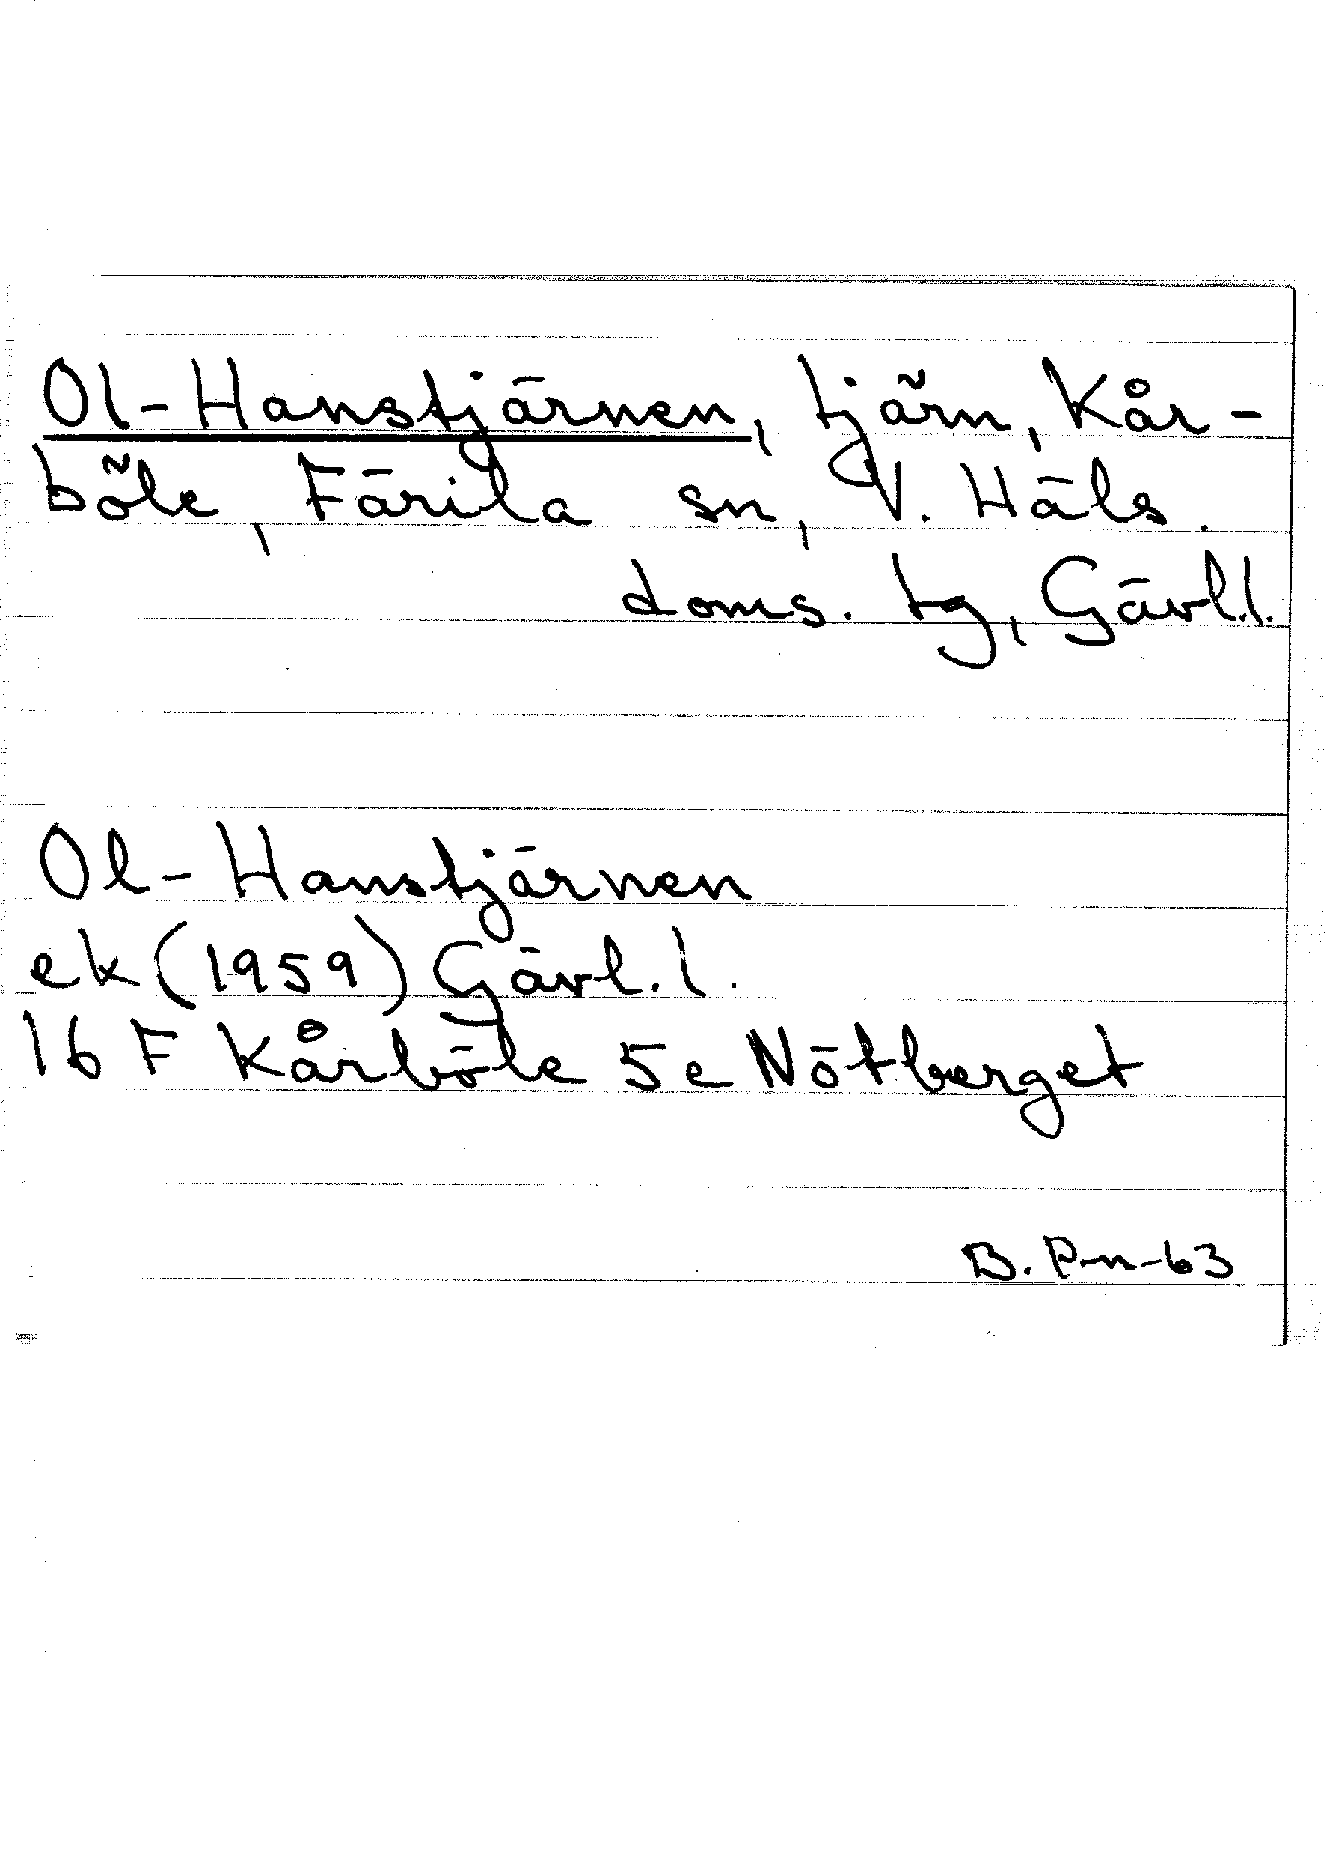 Ol-Hanstjärnen, tjärn, Kår-
böle, Färila sn, V. Häls.
doms. tg, Gävl.l.
Ol-Hanstjärnen
ek (1959) Gävl.l.
16 F Kårböle 5e Nötberget
B. P-n-63